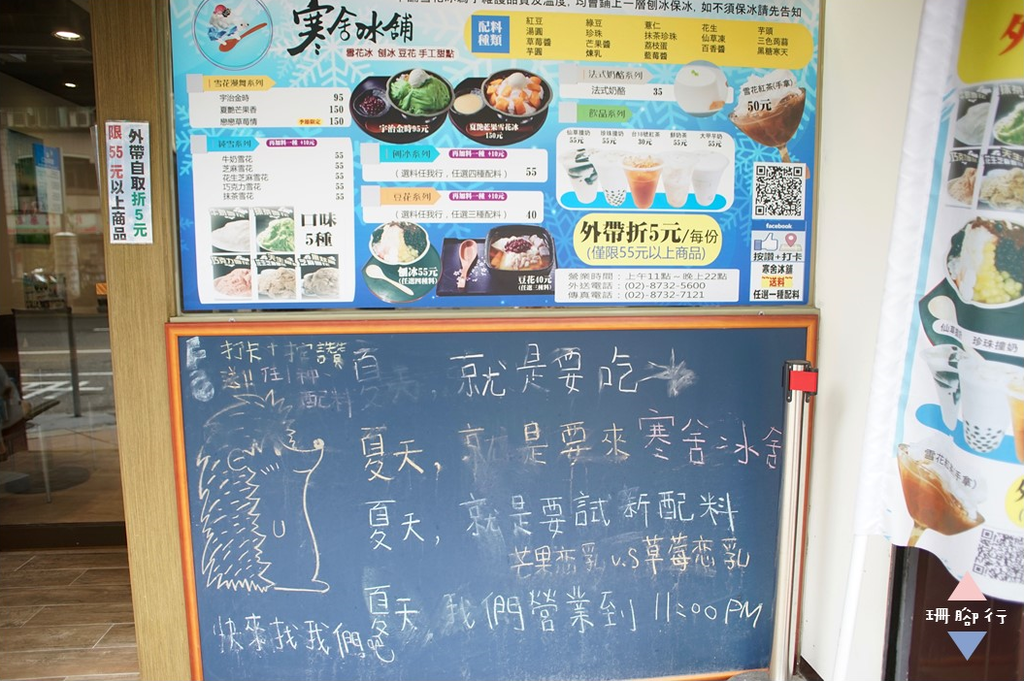 均會鋪上一層刨冰保冰, 如不須保冰請先告知
寒舍冰舖
雪花冰 刨冰 豆花 手工甜點
配料種類
紅豆 綠豆 薏仁 花生 芋頭
湯圓 珍珠 抹茶珍珠 仙草凍 三色蒟蒻
草莓醬 芒果醬 荔枝醬 百香醬 黑糖寒天
芋圓 煉乳 藍莓醬
雪花漫舞系列
宇治金時 95
夏艷芒果香 150
戀戀草莓情 季節限定 150
宇治金時95元
夏艷芒果雪花冰
150元
法式奶酪系列
法式奶酪 35
雪花紅茶(手拿)
50元
飲品系列
55元 55元 30元 55元 55元
純雪系列 再加料一種 +10元
牛奶雪花 55
芝麻雪花 55
花生芝麻雪花 55
巧克力雪花 55
抹茶雪花 55
口味
5種
刨冰系列 再加料一種 +10元
(選料任我行，任選四種配料) 55
豆花系列 再加料一種 +10元
(選料任我行，任選三種配料) 40
刨冰55元
(任選四種料)
豆花40元
(任選三種料)
外帶折5元/每份
(僅限55元以上商品)
營業時間：上午11點~晚上22點
外送電話：(02)-8732-5600
傳真電話：(02)-8732-7121
facebook
按讚+打卡
寒舍冰舖
送料
任選一種配料
外帶自取折5元
限55元以上商品
打卡+按讚
送!!任1種
配料
夏天，就是要吃冰
夏天，就是要來寒舍冰舍
夏天，就是要試新配料
芒果恋乳 v.s 草莓恋乳
夏天 我們營業到 11:00PM
快來找我們吧
珍珠撞奶
雪花紅茶(手拿)
珊腳行